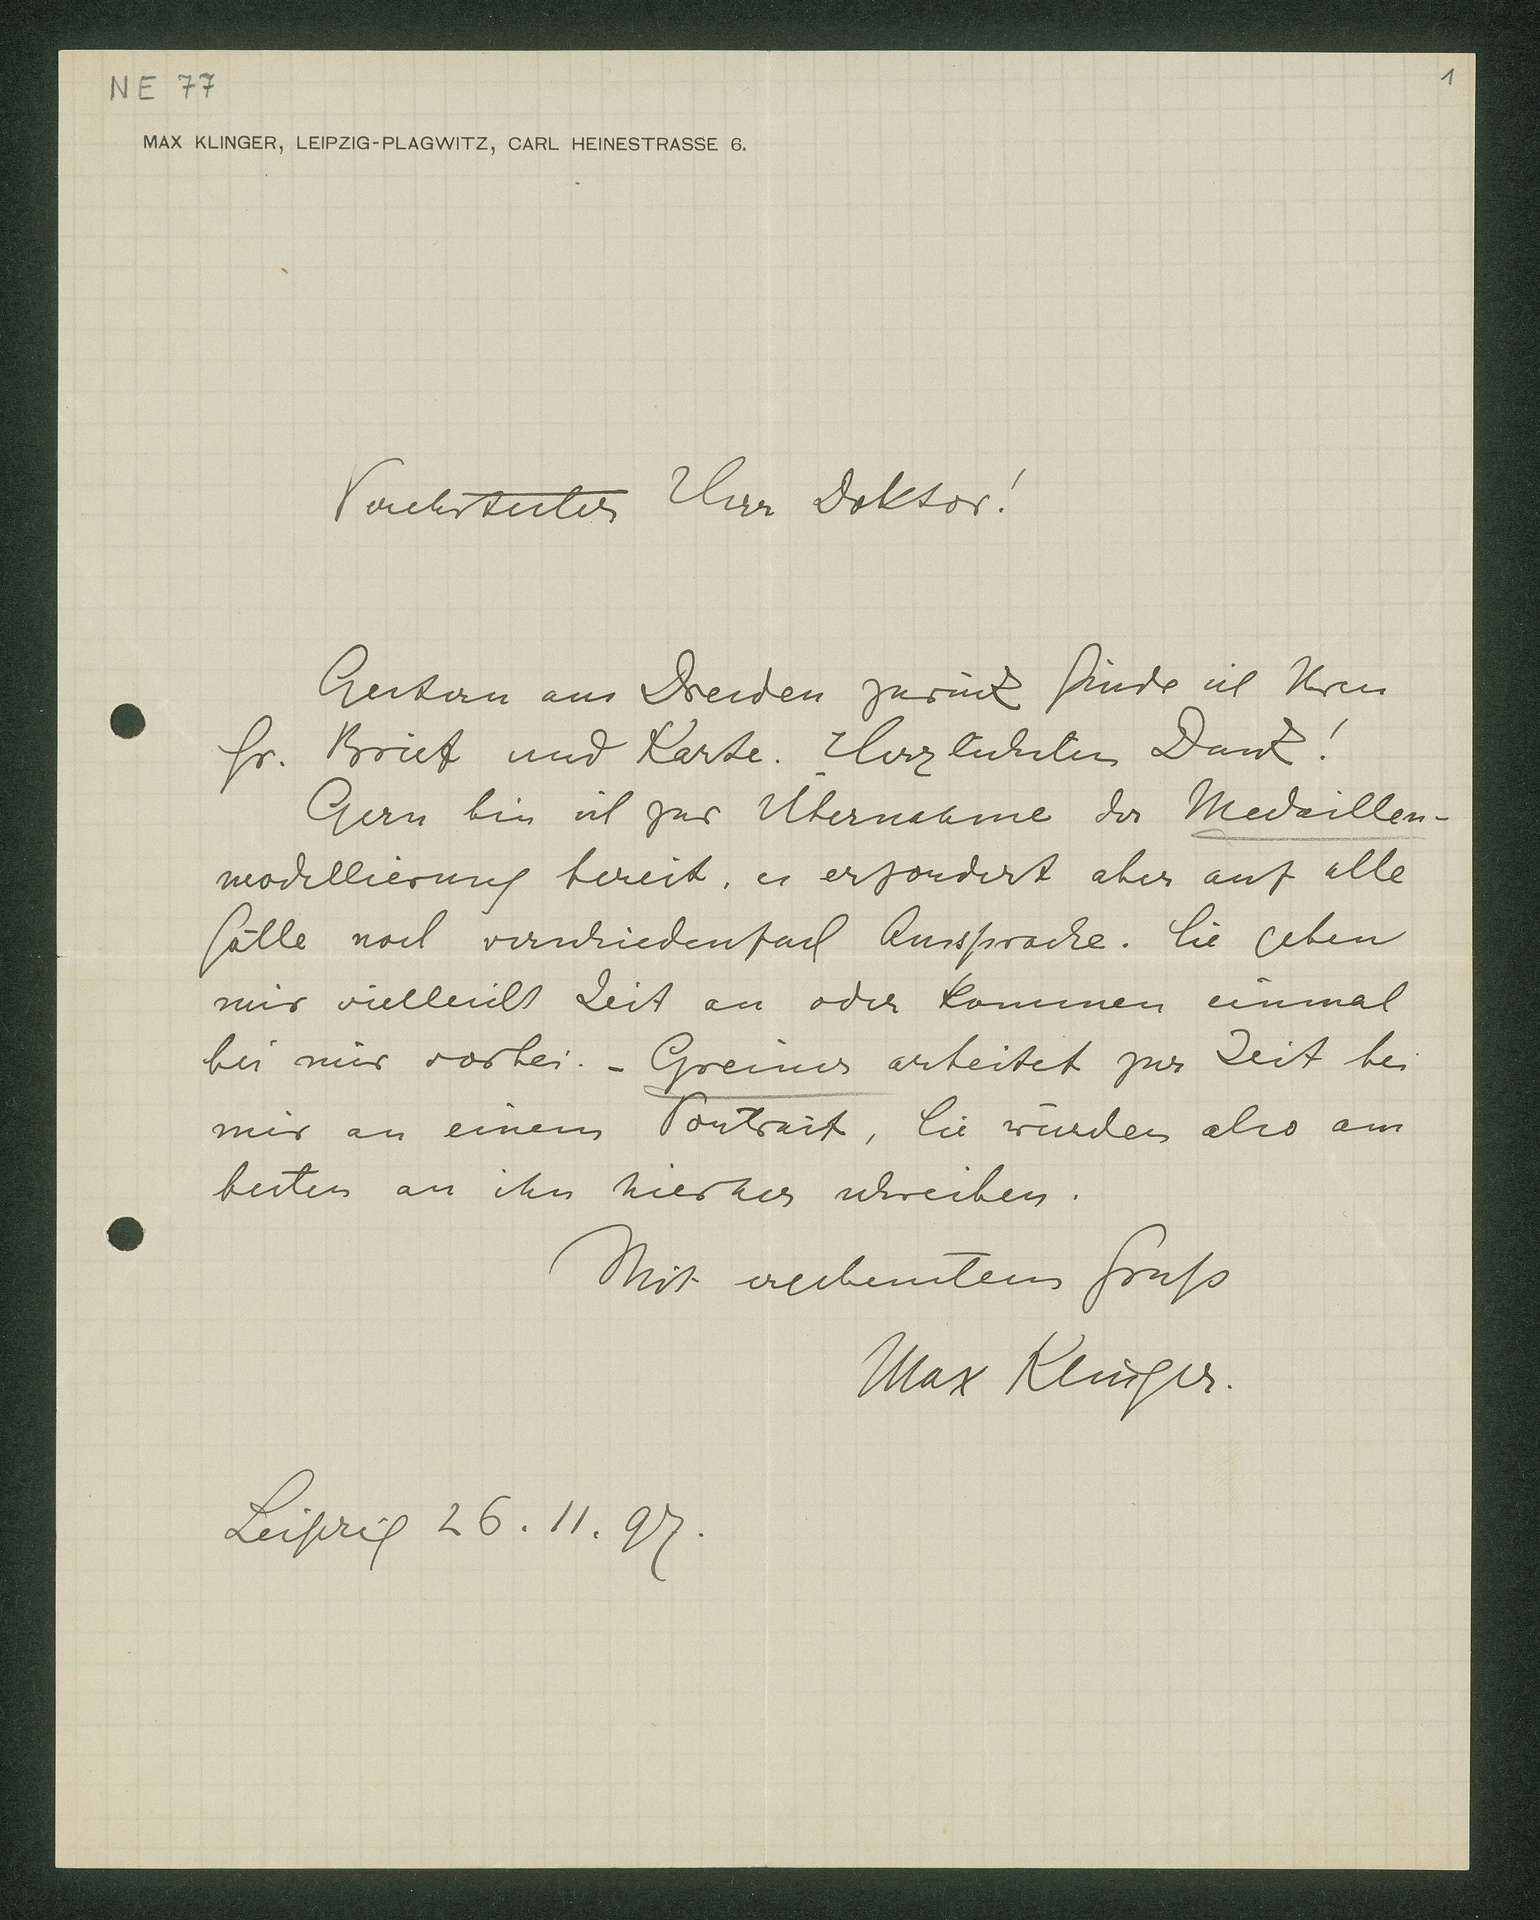 NE 77
1
MAX KLINGER, LEIPZIG-PLAGWITZ, CARL HEINESTRASSE 6.
Verehrtester Herr Doktor!
Gestern aus Dresden zurück finde ich Ihren
fr. Brief und Karte. Herzlichsten Dank!
Gern bin ich zur Übernahme der Medaillen-
modellierung bereit, es erfordert aber auf alle
Fälle noch verschiedenfach Aussprache. Sie geben
mir vielleicht Zeit an oder kommen einmal
bei mir vorbei. – Greiner arbeitet zur Zeit bei
mir an einem Portrait, Sie würden also am
besten an ihn hierher schreiben.
Mit ergebenstem Gruß
Max Klinger.
Leipzig 26. 11. 97.